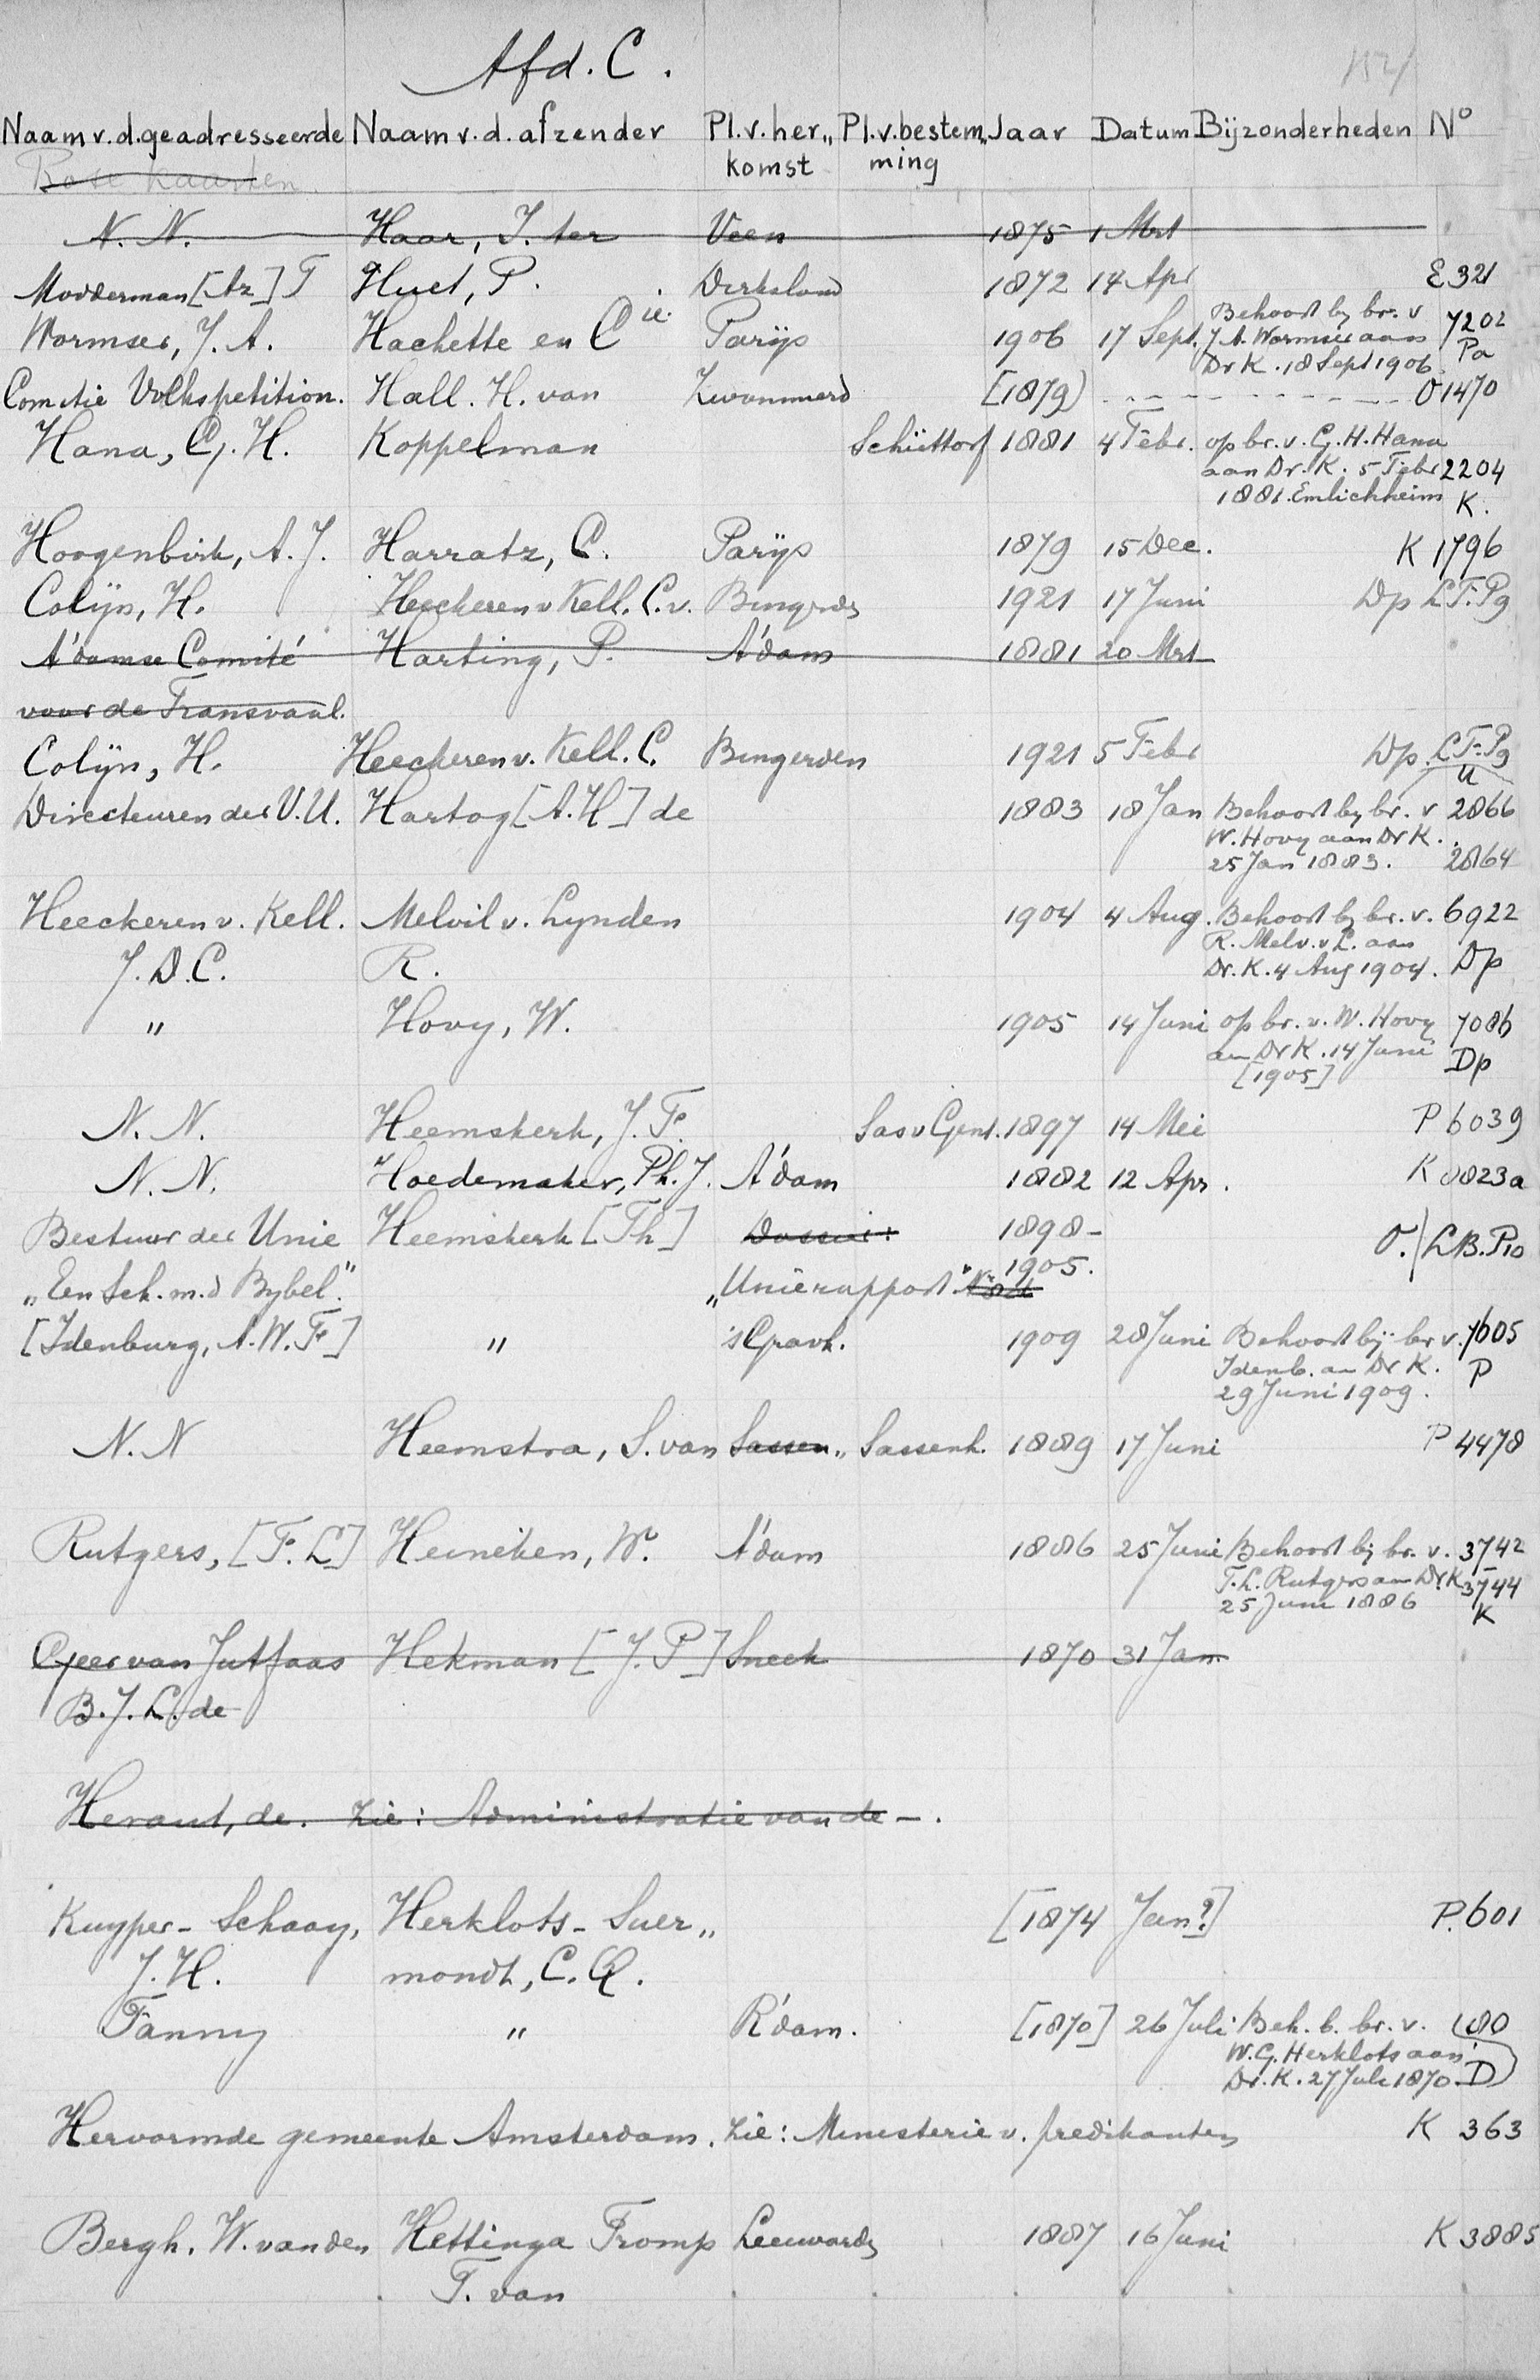 Afd. C.
Naam v. d. geadresseerde Naam v. d. afzender Pl. v. her„ Pl. v. bestem„ Jaar Datum Bijzonderheden No
komst ming
N. N. Haar, J. ter Veen 1875 1 Mrt
Modderman [Az] T Huet, P. Dirksland 1872 14 Apr E 321
Wormser, J. A. Hachette en Cie. Parijs 1906 17 Sept. Behoort bij br. v 7202
J. A. Wormser aan Pa
Dr K. 18 Sept 1906.
Comitie Volkspetition. Hall. H. van Zwammerd [1879) - - - - - - - - - - O 1470
Hana, G. H. Koppelman Schüttorf 1881 4 Febr. op br. v. G. H. Hana
aan Dr. K. 5 Febr 2204
1881. Emlichheim K.
Hoogenbirk, A. J. Harratz, C. Parijs 1879 15 Dec. K 1796
Colijn, H. Heeckeren v Kell. C. v. Bingerden 1921 17 Juni Dp L F. Pg
A'damse Comité Harting, P. A'dam 1881 20 Mrt
voor de Transvaal.
Colijn, H. Heeckeren v. Kell. C. Bingerden 1921 5 Febr Dp. L F. Pg
Directeuren der V. U. Hartog [A. H] de 1883 18 Jan Behoort bij br. v 2866
W. Hovy aan Dr K.
25 Jan 1883. 2864
Heeckeren v. Kell. Melvil v. Lynden 1904 4 Aug. Behoort bij br. v. 6922
J. D. C. R. R. Melv. v L. aan
Dr. K. 4 Aug 1904. Dp
" Hovy, W. 1905 14 Juni op br. v. W. Hovy 7086
an Dr K. 14 Juni Dp
[1905]
N. N. Heemskerk, J. F. Sas v Gent. 1897 14 Mei P 6039
N. N. Hoedemaker, Ph. J. A'dam 1882 12 Apr. K 0823a
Bestuur der Unie Heemskerk [Th] Dossier: 1898- O. / LB. P10
1905.
„Een Sch. m. d Bybel." „Unierapport"
[Idenburg, A. W. F] " 's Gravh. 1909 28 Juni Behoort bij br v. 7605
Idenb. an Dr K. P
29 Juni 1909.
N. N Heemstra, S. van Sassen„ Sassenh. 1889 17 Juni P 4478
Rutgers, [F. L] Heineken, W. A'dam 1886 25 Juni Behoort bij br. v. 3742
F. L. Rutgers an Dr K 3744
25 Juni 1886 K
Geer van Jutfaas Hekman [J. P] Sneek 1870 31 Jan.
B. J. L. de
Heraut, de. Zie: Administratie van de -.
Kuyper - Schaay, Herklots - Suer„ [1874 Jan?] P. 601
J. H. mondt, C. Q.
Fanny " R'dam. [1870] 26 Juli Beh. b. br. v. 180
W. G. Herklots aan
Dr. K. 27 Juli 1870. D
Hervormde gemeente Amsterdam. Zie: Ministerie v. predikanten K 363
Bergh. W. van den Hettinga Tromp Leeuwarden 1887 16 Juni K 3885
T. van